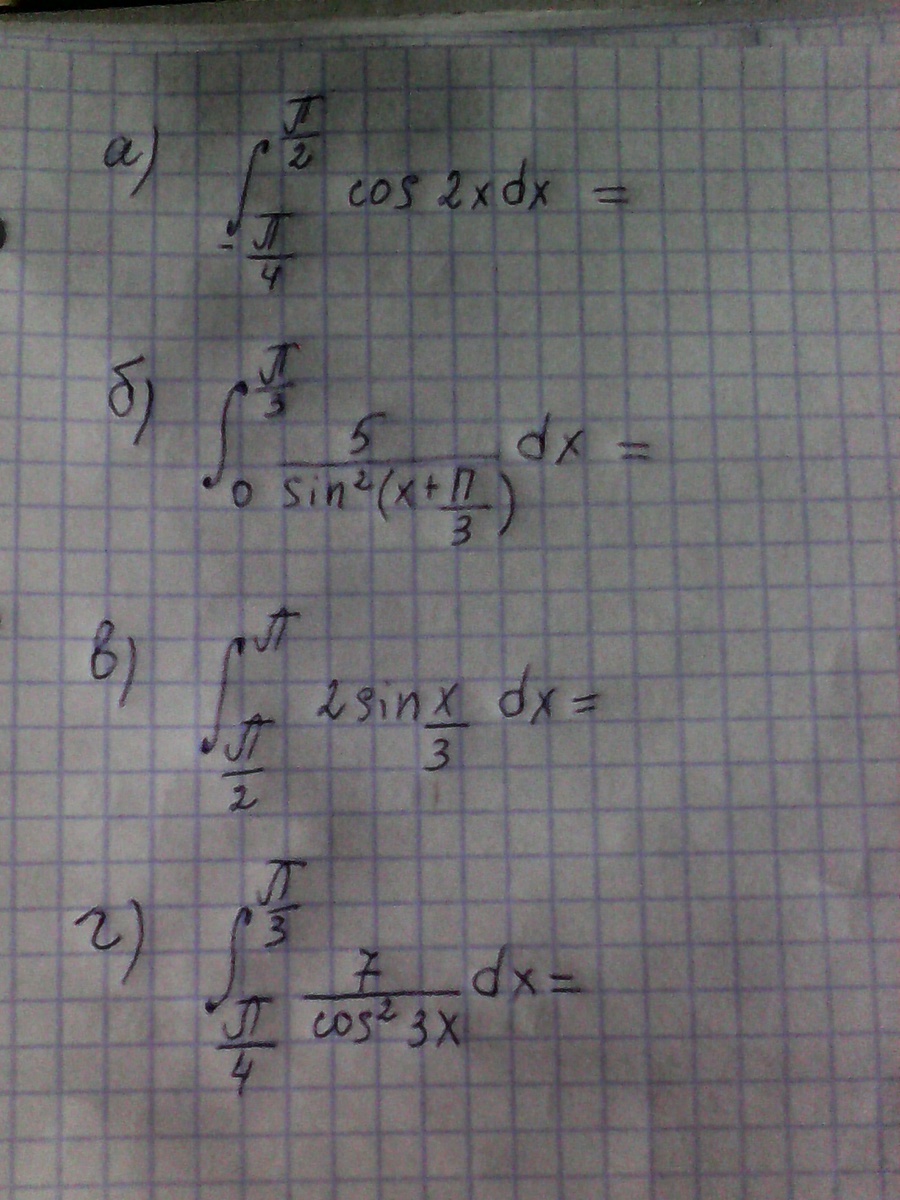 а) ∫_{-π/4}^{π/2} cos 2x dx =
б) ∫_{0}^{π/3} 5/sin²(x+π/3) dx =
в) ∫_{π/2}^{π} 2 sin x/3 dx =
г) ∫_{π/4}^{π/3} 7/cos² 3x dx =